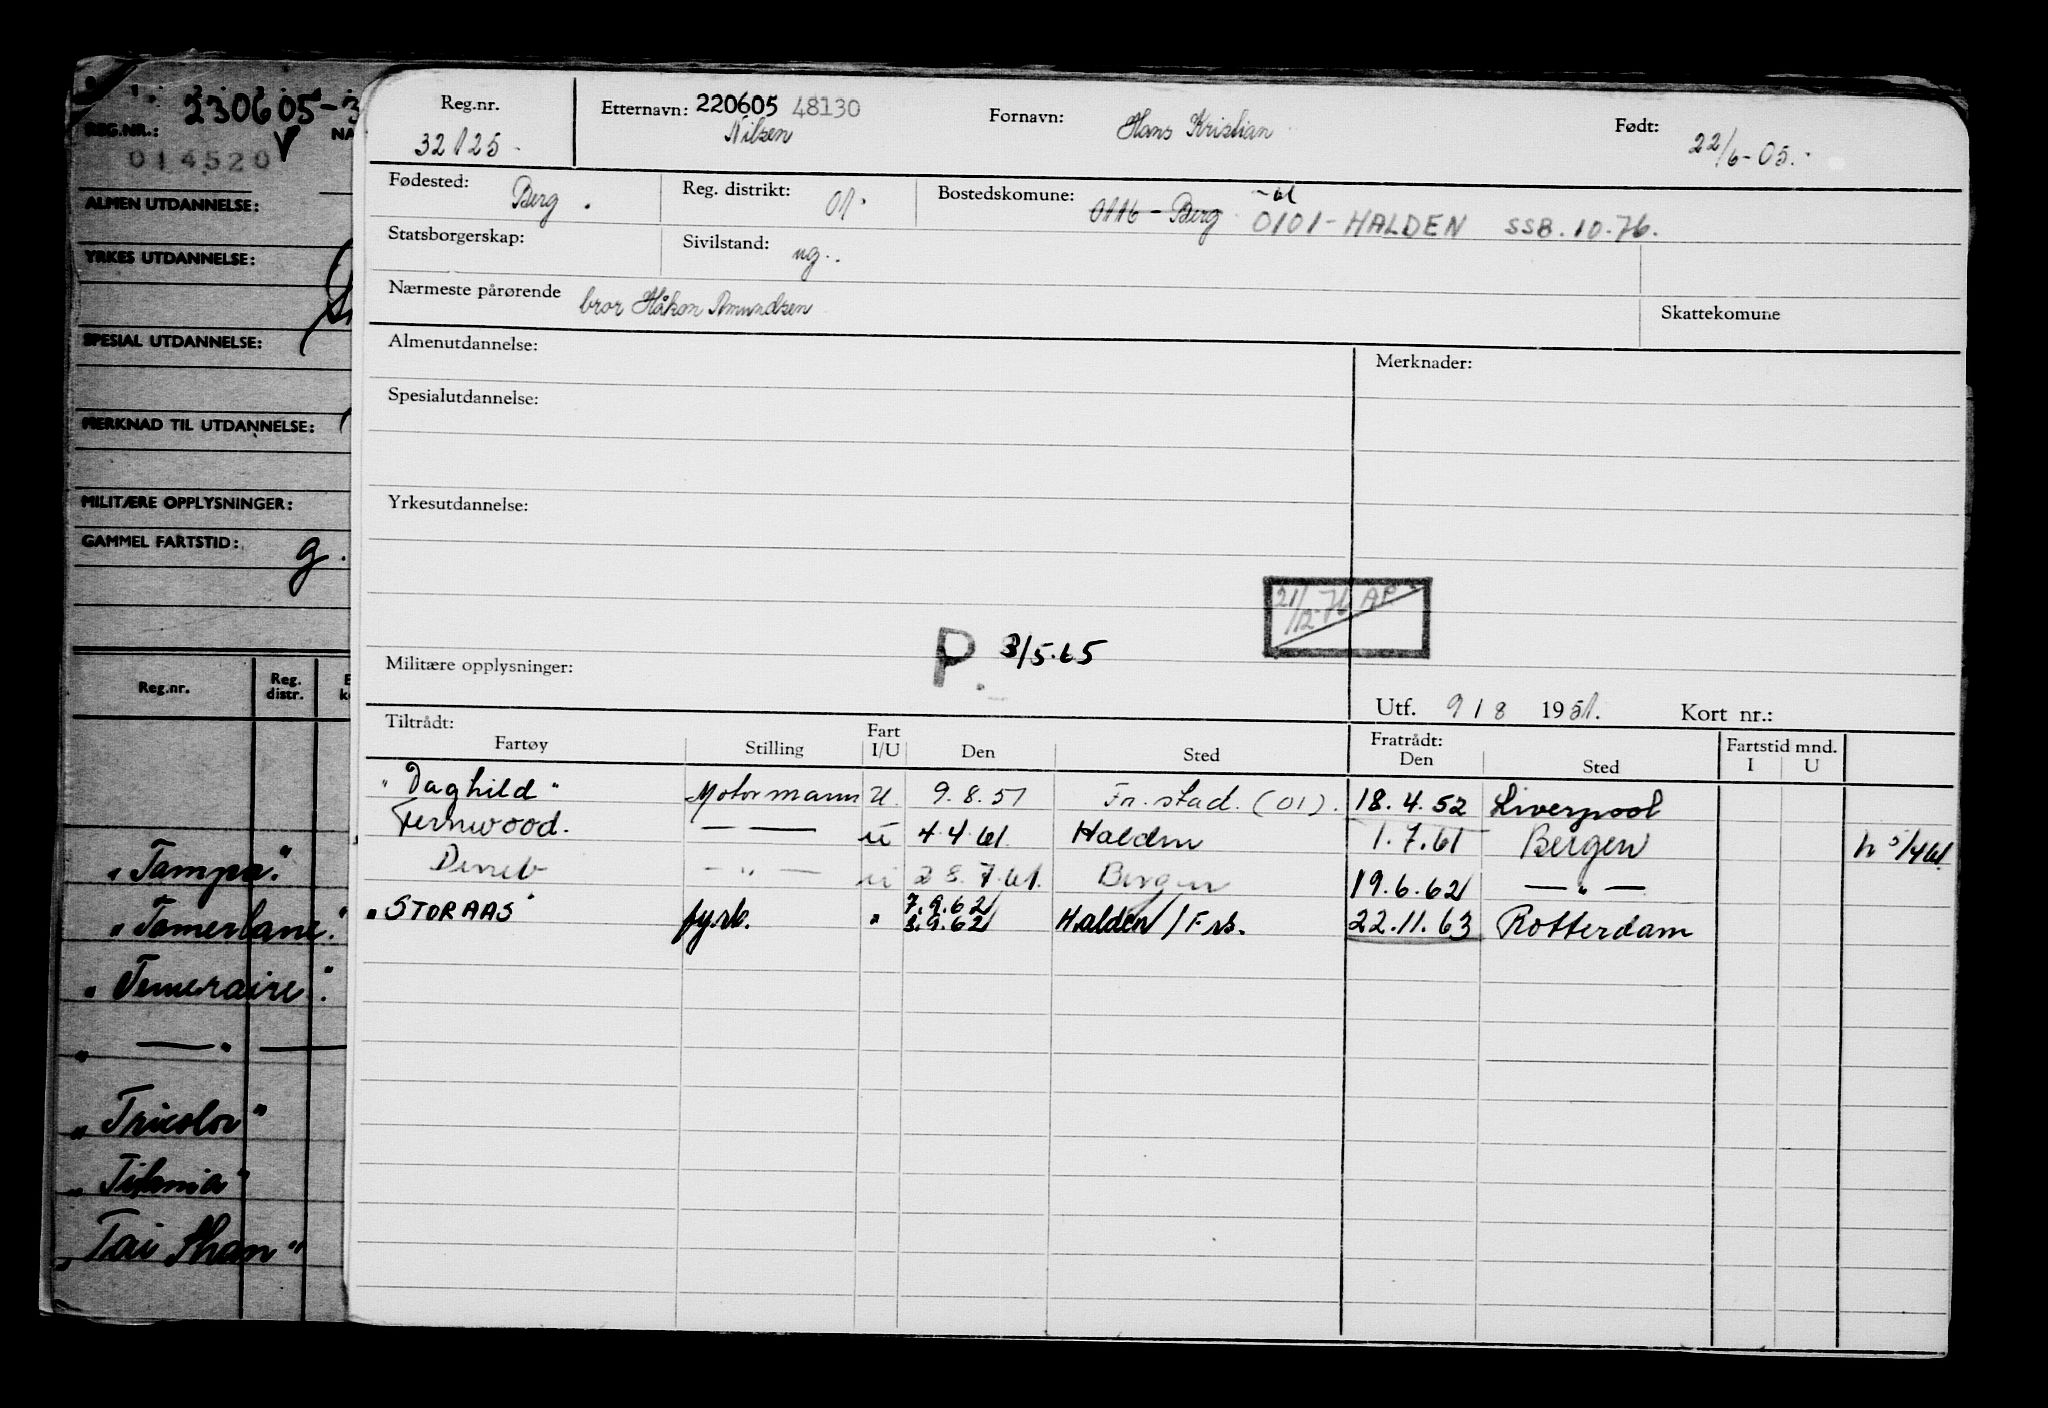 230605-3
REG.NR.:
NA
014520
ALMEN UTDANNELSE:
YRKES UTDANNELSE:
SPESIAL UTDANNELSE:
MERKNAD TIL UTDANNELSE:
MILITÆRE OPPLYSNINGER:
GAMMEL FARTSTID: g.
Reg.nr. Reg. distr.
"Tampa."
"Tamerlane."
"Temeraire".
" — " —
"Tricolor"
"Titania"
"Tai Shan"
Reg.nr. Etternavn: 220605 48130 Fornavn: Hans Kristian Født: 22/6-05.
32125. Nilsen
Fødested: Berg. Reg. distrikt: 01. Bostedskomune: 0116 - Berg 0101-HALDEN SSB.10.76.
Statsborgerskap: Sivilstand: ug.
Nærmeste pårørende bror Håkon Amundsen Skattekomune
Almenutdannelse: Merknader:
Spesialutdannelse:
Yrkesutdannelse:
21/12-76 AP
P. 3/5.65
Militære opplysninger:
Utf. 9 / 8 1951. Kort nr.:
Tiltrådt: Fratrådt: Fartstid mnd.
Fartøy Stilling Fart I/U Den Sted Den Sted I U
"Daghild" Motormann U. 9.8.51 Fr.stad. (01). 18.4.52 Liverpool
Fernwood. — — u 4.4.61. Halden 1.7.61 Bergen n 5/4 61
— " — u 28.7.61. Bergen 19.6.62 — " —
"STORAAS" fyrb. " 7.9.62 8.9.62 Halden / Frs. 22.11.63 Rotterdam